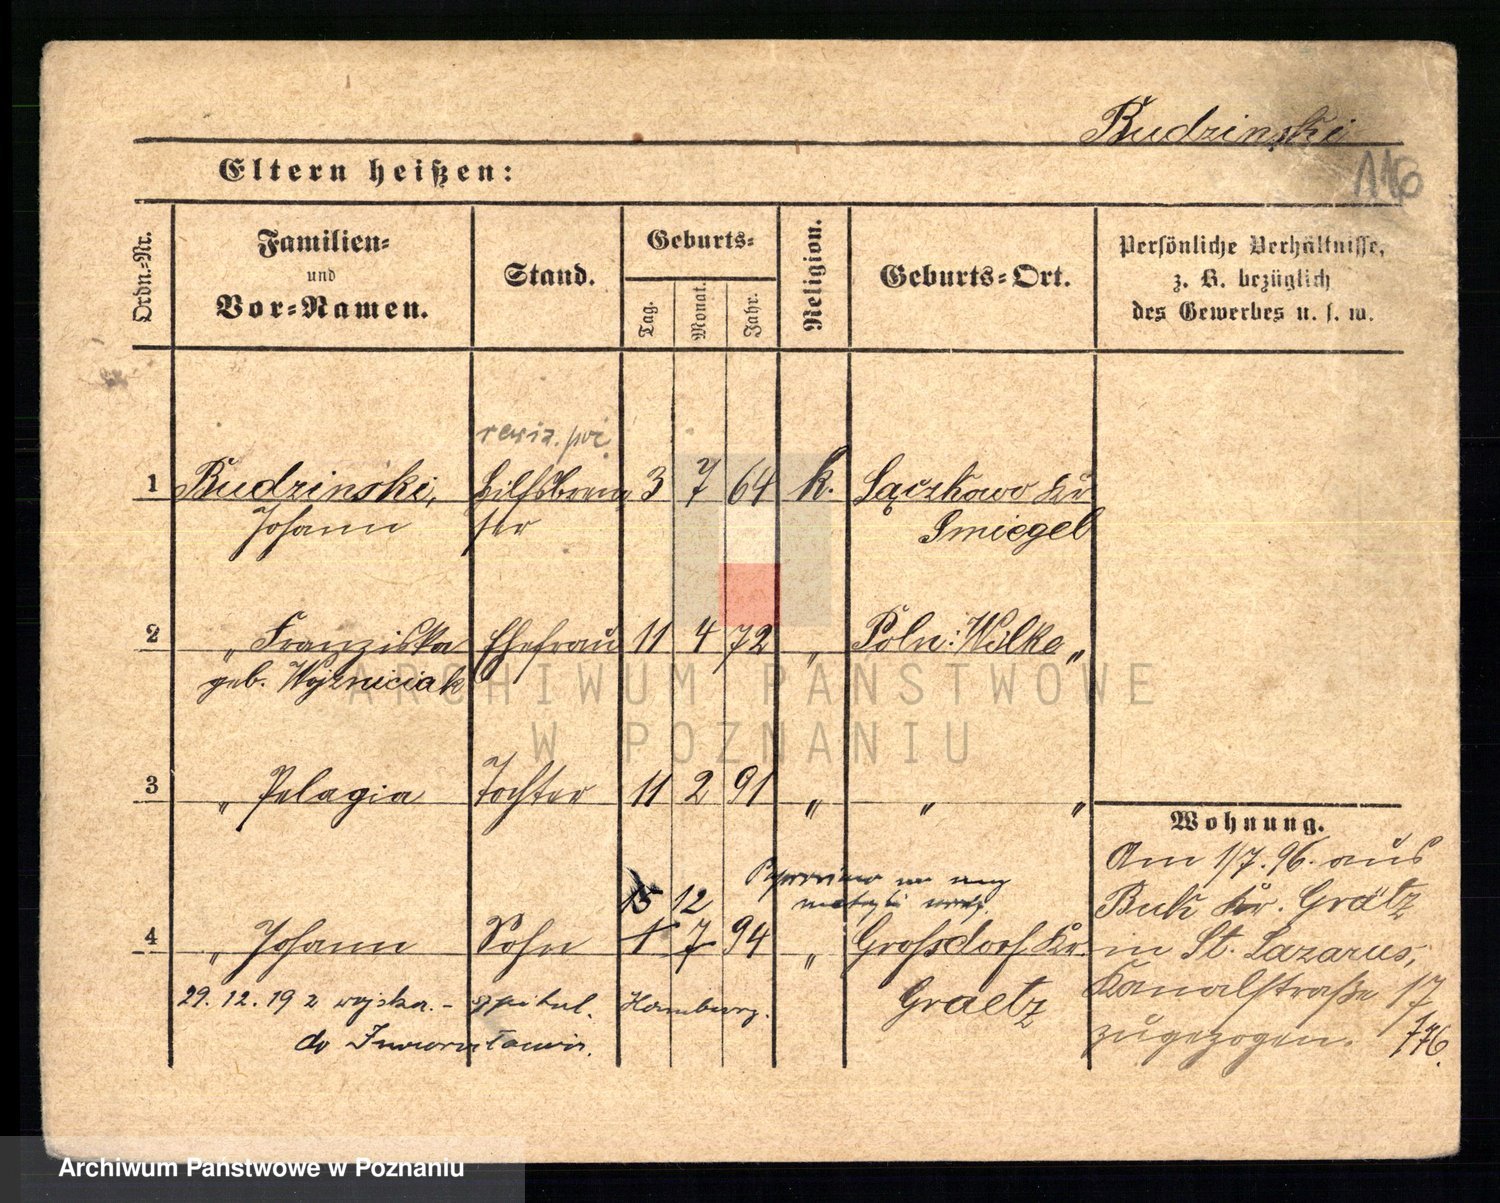 Budzinski
116
Eltern heißen:
Ordn.-Nr.
Familien-
und
Vor-Namen.
Stand.
Geburts-
Tag.
Monat.
Jahr.
Religion.
Geburts-Ort.
Persönliche Verhältnisse,
z. B. bezüglich
des Gewerbes u. s. w.
1 Budzinski, Hilfsbrem 3 7 64 k. Sączkowo Kr
Johann ser Smiegel
2 " Franziska Ehefrau 11 4 72 " Poln: Wilke "
geb. Woyzniciak
3 " Pelagia Tochter 11 2 91 " " "
Wohnung.
Am 1/7. 96. aus
Buk Kr. Grätz
in St. Lazarus,
Kanalstraße 17
zugezogen. 7/7 96.
15 12
4 " Johann Sohn 1 7 94 " Großdorf Kr.
Graetz
29. 12. 19 z wojska. - szpital. Hamburg.
do Inowrocławia.
ARCHIWUM PAŃSTWOWE
W POZNANIU
Archiwum Państwowe w Poznaniu